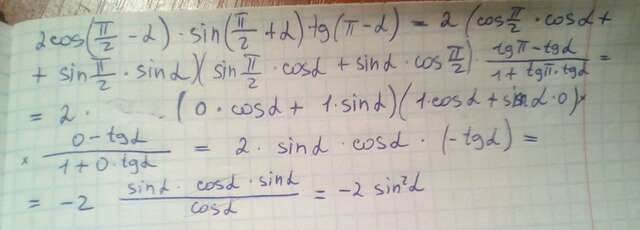 2cos(π/2 - α) · sin(π/2 + α) · tg(π - α) = 2 (cos π/2 · cosα +
+ sin π/2 · sinα)(sin π/2 · cosα + sinα · cos π/2) · (tgπ - tgα)/(1 + tgπ · tgα) =
= 2 · (0 · cosα + 1 · sinα)(1 · cosα + sinα · 0) ×
× (0 - tgα)/(1 + 0 · tgα) = 2 · sinα · cosα · (-tgα) =
= -2 (sinα · cosα · sinα)/cosα = -2 sin²α